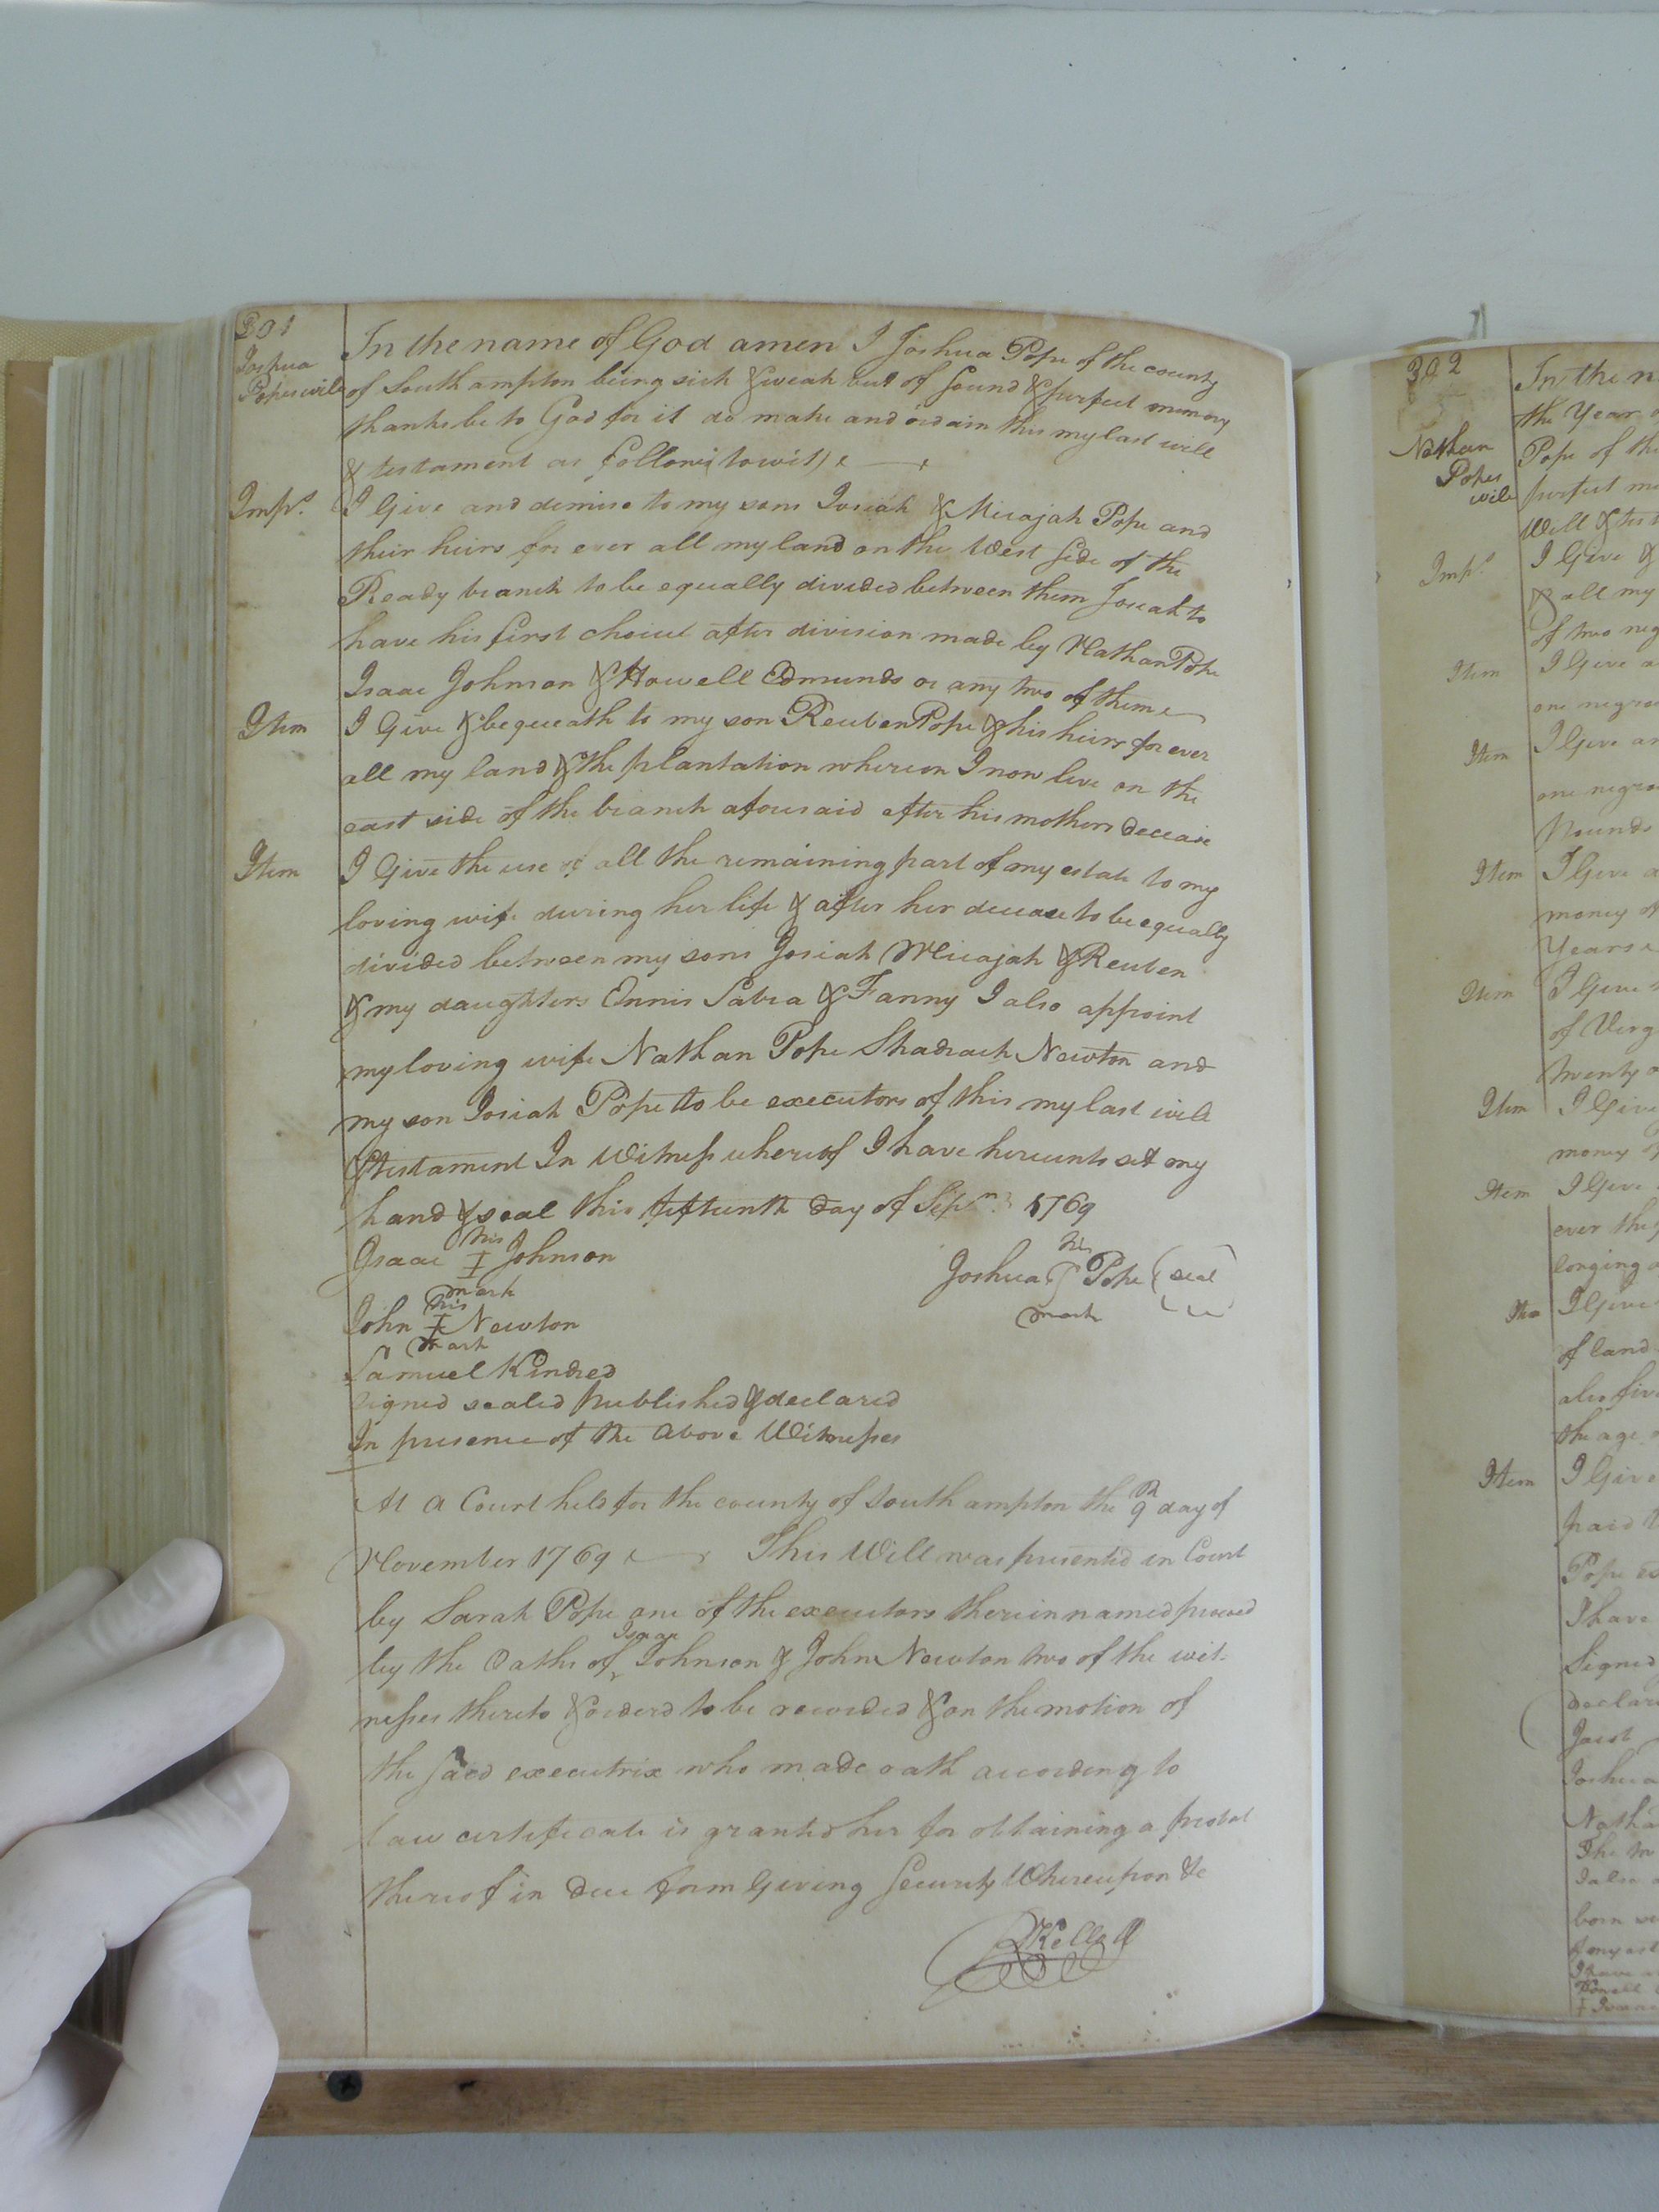 301
Joshua
Popes will
In the name of God amen I Joshua Pope of the county
of Southampton being sick & weak but of sound & perfect memory
thanks be to God for it do make and ordain this my last will
& testament as follows towit)
Imps.
I Give and demise to my sons Josiah & Micajah Pope and
their heirs for ever all my land on the West side of the
Ready branch to be equally divided between them Josiah to
have his first choice after division made by Nathan Pope
Isaac Johnson & Howell Edmunds or any two of them
Item
I Give & bequeath to my son Reuben Pope & his heirs for ever
all my land & the plantation whereon I now live on the
east side of the branch aforesaid after his mothers decease
Item
I Give the use of all the remaining part of my estate to my
loving wife during her life & after her decease to be equally
divided between my sons Josiah Micajah & Reuben
& my daughters Ennis Sabra & Fanny I also appoint
my loving wife Nathan Pope Shadrach Newton and
my son Josiah Pope to be executors of this my last will
& testament In Witness whereof I have hereunto set my
hand & seal this fifteenth day of Sepr. 1769
Isaac his I Johnson
mark
Joshua his Pope (seal)
mark
John his I Newton
mark
Samuel Kindred
signed sealed published & declared
In presence of the above Witnesses
At a Court held for the county of Southampton the 9th day of
November 1769 This Will was presented in Court
by Sarah Pope one of the executors therein named proved
by the Oaths of Isaac Johnson & John Newton two of the wit-
nesses thereto & orderd to be recorded & on the motion of
the said executrix who made oath according to
law certificate is granted her for obtaining a probat
thereof in due form Giving Security Whereupon &c
RKello
302
Nathan
Popes
will
In the
the Year
Pope of the
perfect
Will & test
Imps.
I Give &
& all my
of two neg
Item
I Give
one negro
Item
I Give an
one negro
Pounds
Item
I Give
money of
Years
Item
I Give
of Virg
twenty
Item
I Give
money
Item
I Give
ever the
longing
I Give
of land
also five
the age
Item
I Give
paid
Pope
I have
Signed
declare
Joshua
Natha
I also
born